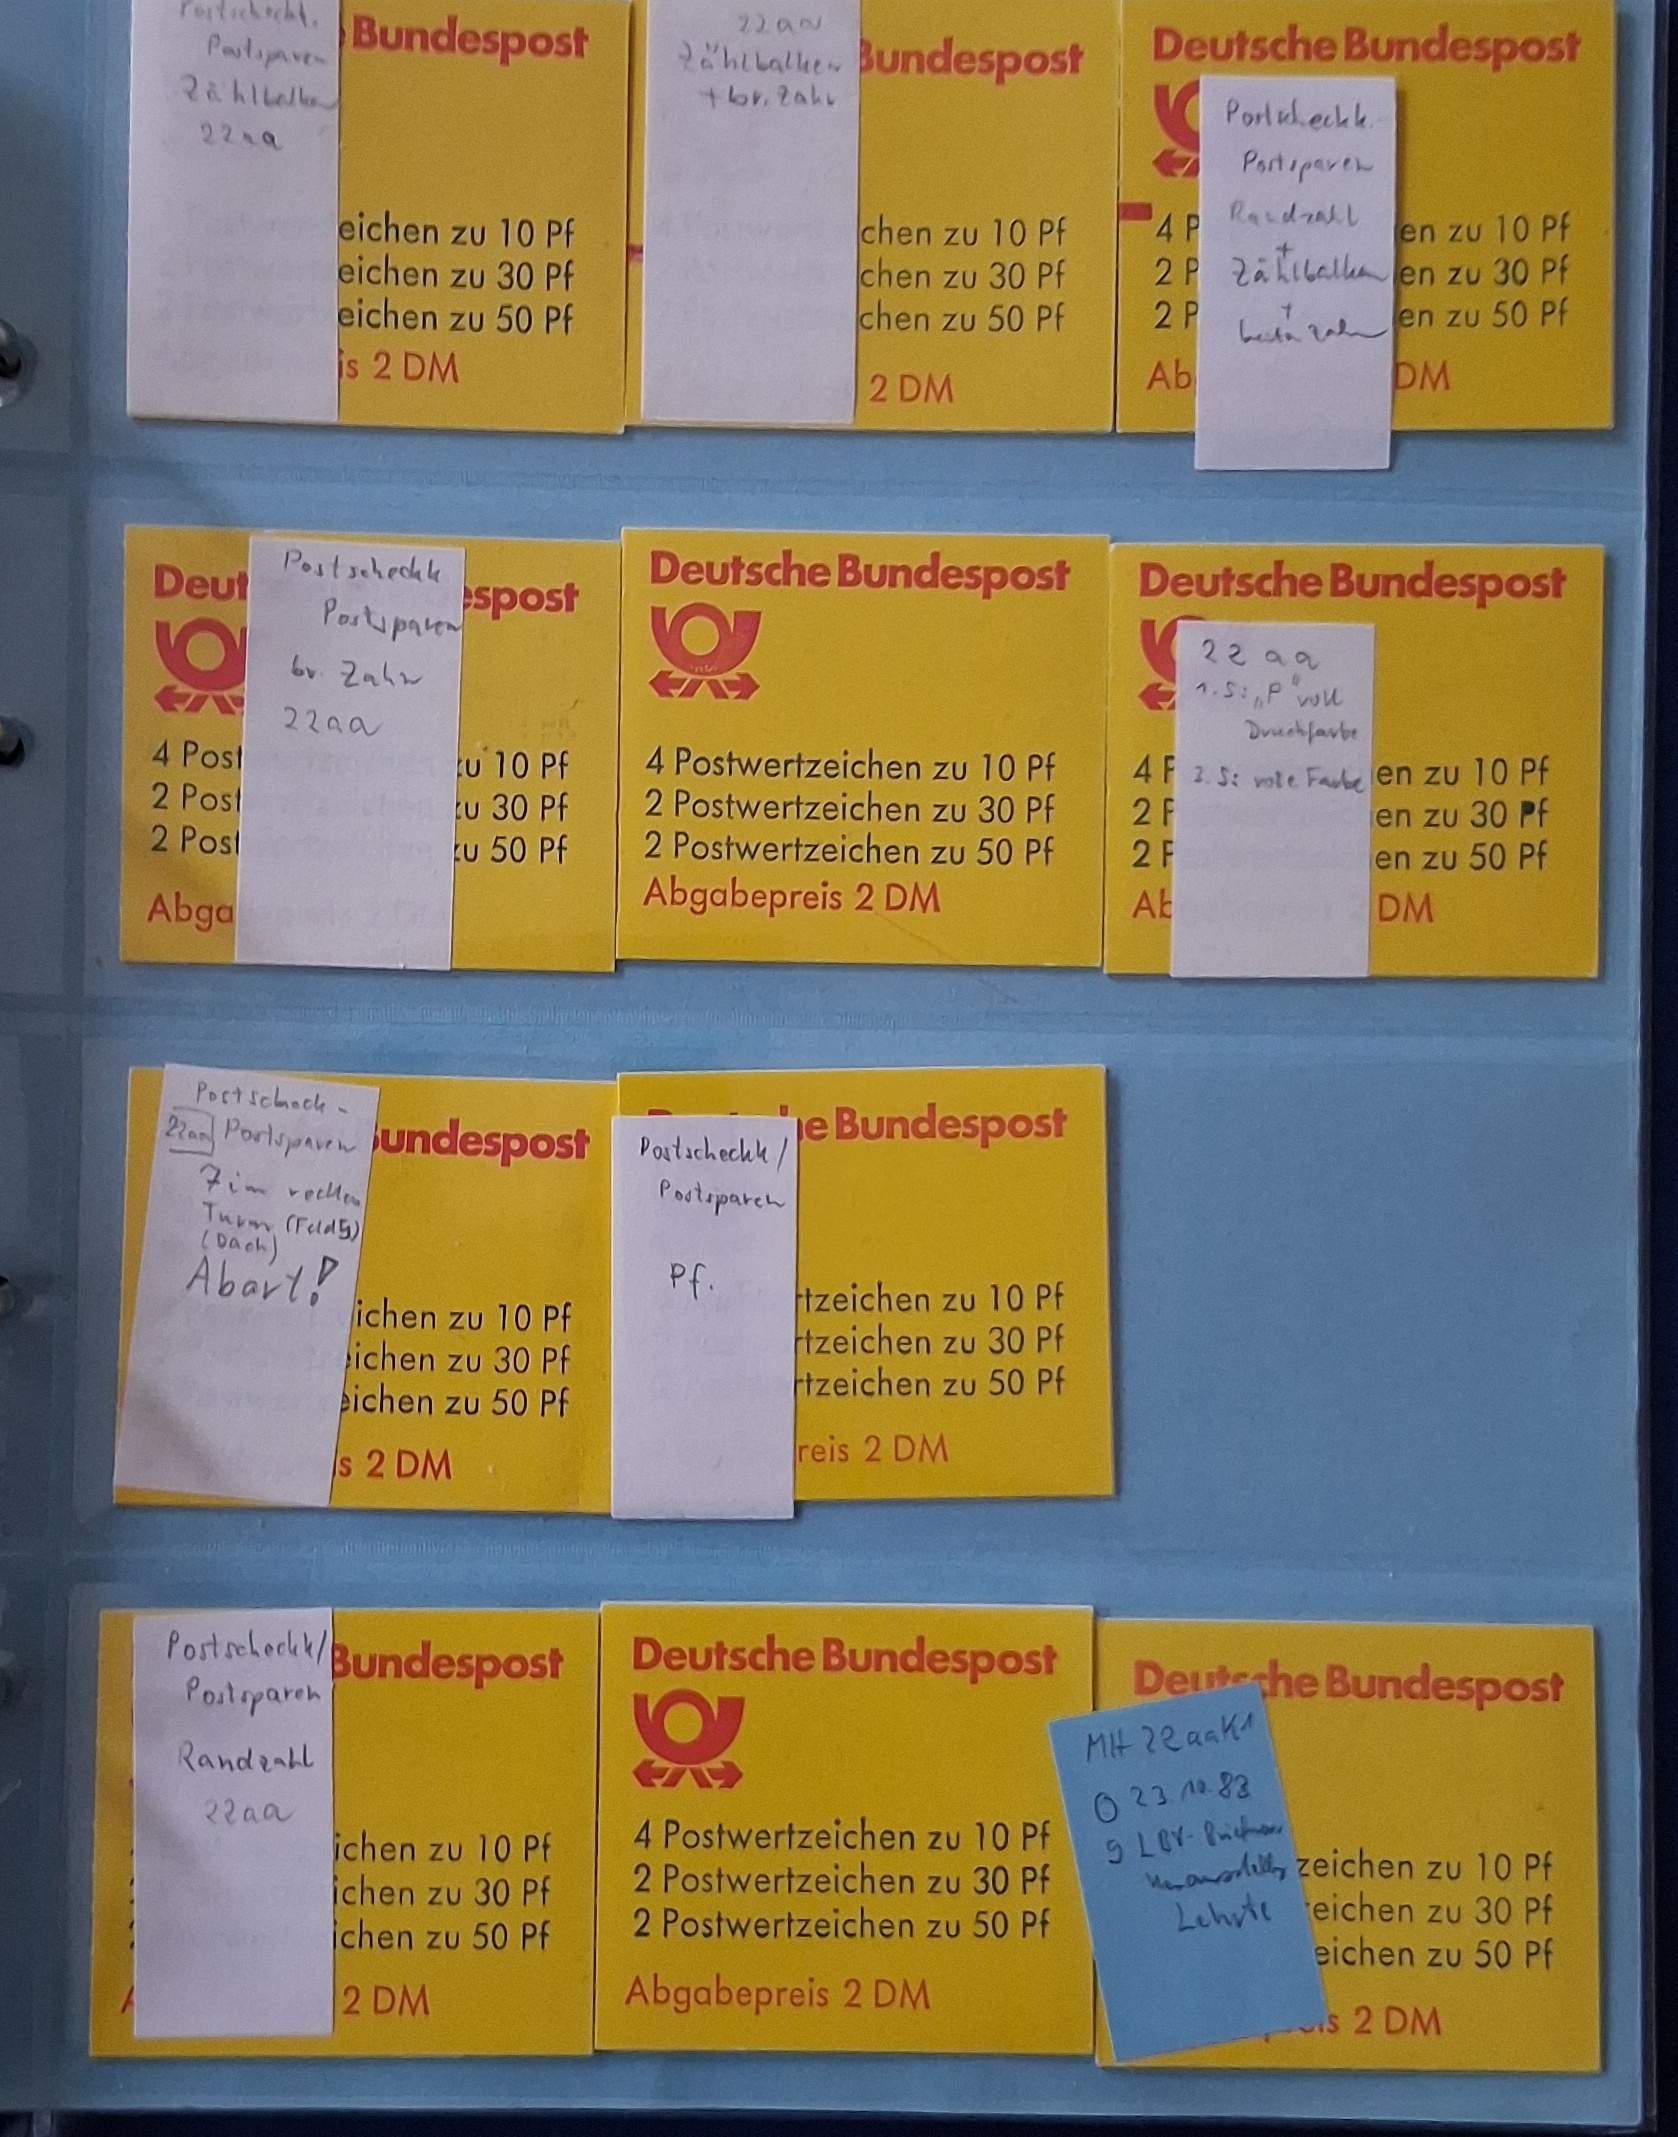 Postscheckk.
Postsparen
Zählbalken
22aa
Bundespost
eichen zu 10 Pf
eichen zu 30 Pf
eichen zu 50 Pf
is 2 DM
22aa
Zählbalken
+ br. Zahn
Bundespost
chen zu 10 Pf
chen zu 30 Pf
chen zu 50 Pf
2 DM
Deutsche Bundespost
Postscheckk.
Postsparen
Randzahl
+
Zählbalken
+
4 P
en zu 10 Pf
2 P
en zu 30 Pf
2 P
en zu 50 Pf
Ab
DM
Deut
espost
Postscheckk
Postsparen
br. Zahn
22aa
4 Post
zu 10 Pf
2 Post
zu 30 Pf
2 Post
zu 50 Pf
Abga
Deutsche Bundespost
4 Postwertzeichen zu 10 Pf
2 Postwertzeichen zu 30 Pf
2 Postwertzeichen zu 50 Pf
Abgabepreis 2 DM
Deutsche Bundespost
22 aa
1. S: "P" voll
Druckfarbe
2. S: rote Farbe
4 P
en zu 10 Pf
2 P
en zu 30 Pf
2 P
en zu 50 Pf
Ab
DM
Postscheck-
22aa Postsparen
7 im rechten
Turm (Feld 5)
(Dach)
Abart!
Bundespost
ichen zu 10 Pf
eichen zu 30 Pf
eichen zu 50 Pf
s 2 DM
he Bundespost
Postscheckk/
Postsparen
Pf.
rtzeichen zu 10 Pf
rtzeichen zu 30 Pf
rtzeichen zu 50 Pf
reis 2 DM
Postscheckk/
Postsparen
Randzahl
22aa
Bundespost
ichen zu 10 Pf
ichen zu 30 Pf
ichen zu 50 Pf
2 DM
Deutsche Bundespost
4 Postwertzeichen zu 10 Pf
2 Postwertzeichen zu 30 Pf
2 Postwertzeichen zu 50 Pf
Abgabepreis 2 DM
Deutsche Bundespost
MH 22aaK1
23.10.83
Lehrte
zeichen zu 10 Pf
eichen zu 30 Pf
eichen zu 50 Pf
is 2 DM